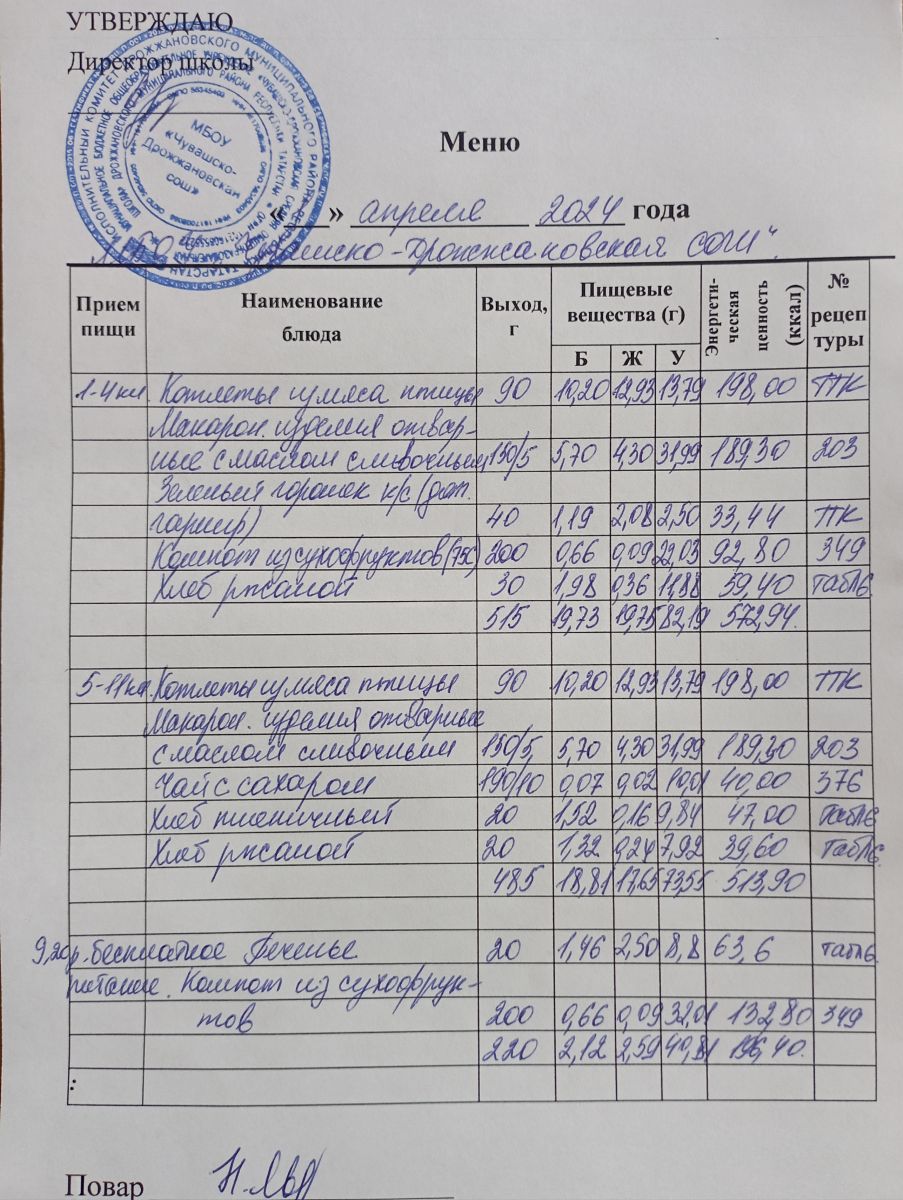 УТВЕРЖДАЮ
Директор школы
МБОУ
«Чувашско-
Дрожжановская
сош»
Меню
« » апреля 2024 года
-Дрожжановская СОШ".
Прием пищи Наименование блюда Выход, г Пищевые вещества (г) Энергети-ческая ценность (ккал) № рецептуры
Б Ж У
1-4 кл Котлеты из мяса птицы 90 10,20 12,93 13,79 198,00 ТТК
Макарон. изделия отвар-
ные с маслом сливочным 150/5 5,70 4,30 31,99 189,30 203
Зеленый горошек к/с (доп.
гарнир) 40 1,19 2,08 2,50 33,44 ТТК
Компот из сухофруктов (75С) 200 0,66 0,09 22,03 92,80 349
Хлеб ржаной 30 1,98 0,36 11,88 59,40 табл6.
515 19,73 19,75 82,19 572,94.
5-11 кл. Котлеты из мяса птицы 90 10,20 12,93 13,79 198,00 ТТК
Макарон. изделия отварные
с маслом сливочным 150/5 5,70 4,30 31,99 189,30 203
Чай с сахаром 190/10 0,07 0,02 10,01 40,00 376
Хлеб пшеничный 20 1,52 0,16 9,84 47,00 табл6
Хлеб ржаной 20 1,32 0,24 7,92 39,60 табл6.
485 18,81 17,65 73,55 513,90
9,20р. бесплатное Печенье 20 1,46 2,50 8,8 63,6 табл6.
питание. Компот из сухофрук-
тов 200 0,66 0,09 32,01 132,80 349
220 2,12 2,59 40,81 196,40.
:
Повар